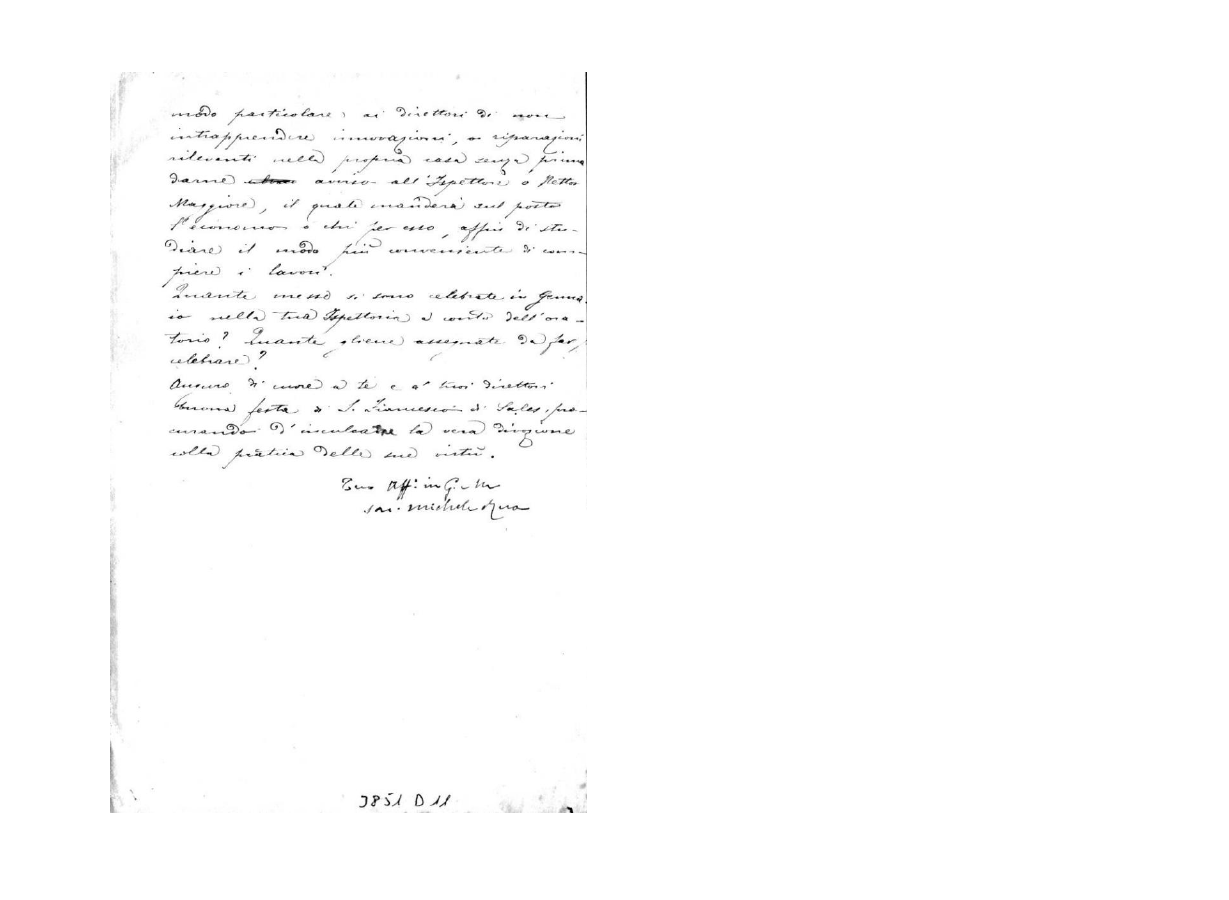 modo particolare, ai direttori di non
intrapprendere innovazioni, o riparazioni
rilevanti nella propria casa senza prima
darne avviso all'Ispettore o Rettor
Maggiore, il quale manderà sul posto
l'economo o chi per esso, affin di stu-
diare il modo più conveniente di com-
piere i lavori.
Quante messe si sono celebrate in Genna-
io nella tua Ispettoria a conto dell'ora-
torio? Quante gliene assegnate da far
celebrare?
Auguro di cuore a te e a' tuoi direttori
buona festa di S. Francesco di Sales, pro-
curando d'inculcare la vera divozione
colla pratica delle sue virtù.
Tuo Aff: in G. e M
Sac. Michele Rua
3851 D 11